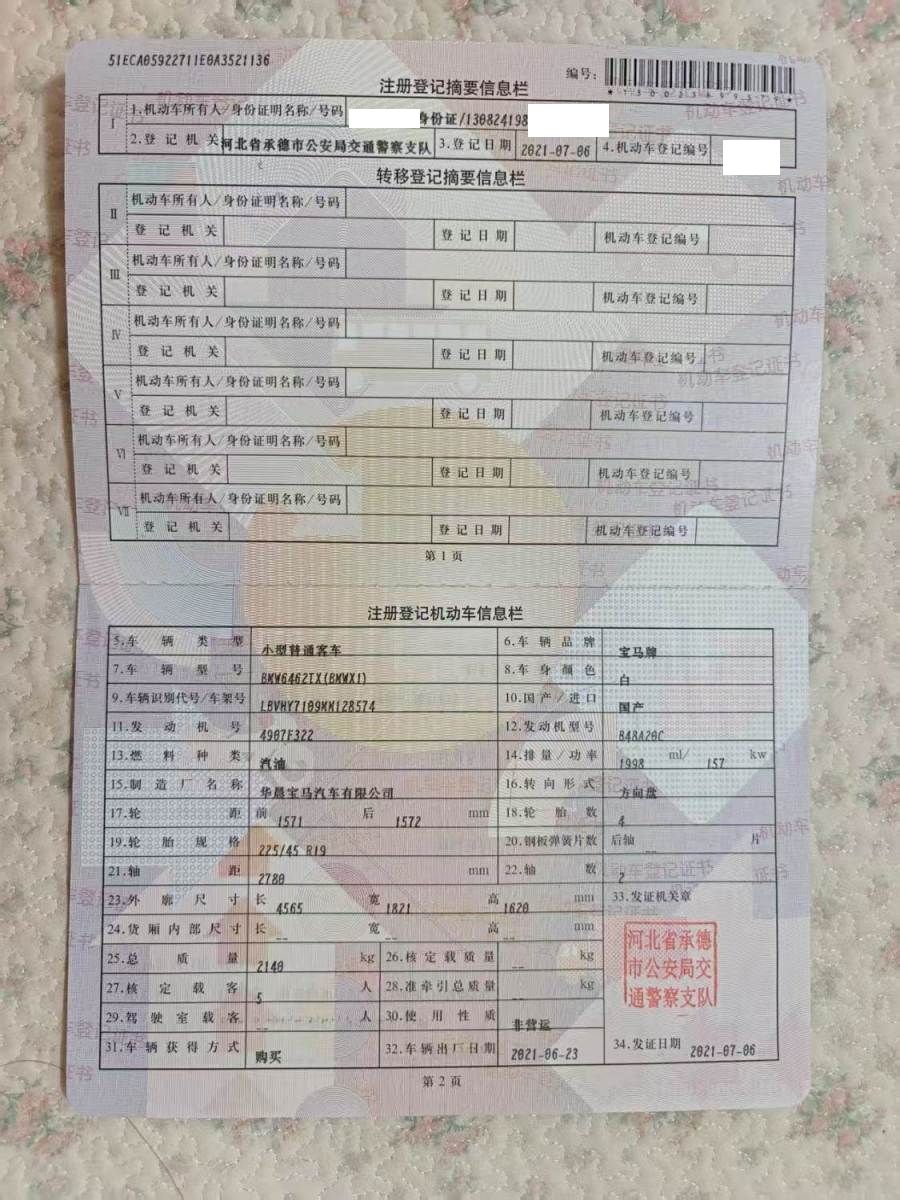 51ECA05922711E0A3521136
编号:
注册登记摘要信息栏
Ⅰ 1.机动车所有人/身份证明名称/号码 身份证/130824198
2.登记机关 河北省承德市公安局交通警察支队 3.登记日期 2021-07-06 4.机动车登记编号
转移登记摘要信息栏
Ⅱ 机动车所有人/身份证明名称/号码
登记机关 登记日期 机动车登记编号
Ⅲ 机动车所有人/身份证明名称/号码
登记机关 登记日期 机动车登记编号
Ⅳ 机动车所有人/身份证明名称/号码
登记机关 登记日期 机动车登记编号
Ⅴ 机动车所有人/身份证明名称/号码
登记机关 登记日期 机动车登记编号
Ⅵ 机动车所有人/身份证明名称/号码
登记机关 登记日期 机动车登记编号
Ⅶ 机动车所有人/身份证明名称/号码
登记机关 登记日期 机动车登记编号
第1页
注册登记机动车信息栏
5.车辆类型 小型普通客车 6.车辆品牌 宝马牌
7.车辆型号 BMW6462TX(BMWX1) 8.车身颜色 白
9.车辆识别代号/车架号 LBVHY7109MM128574 10.国产/进口 国产
11.发动机号 4907F322 12.发动机型号 B48A20C
13.燃料种类 汽油 14.排量/功率 1998 ml/ 157 kw
15.制造厂名称 华晨宝马汽车有限公司 16.转向形式 方向盘
17.轮距 前 1571 后 1572 mm 18.轮胎数 4
19.轮胎规格 225/45 R19 20.钢板弹簧片数 后轴 -- 片
21.轴距 2780 mm 22.轴数 2
23.外廓尺寸 长 4565 宽 1821 高 1620 mm 33.发证机关章
24.货厢内部尺寸 长 -- 宽 -- 高 -- mm
25.总质量 2140 kg 26.核定载质量 -- kg
27.核定载客 5 人 28.准牵引总质量 -- kg
河北省承德
市公安局交
通警察支队
29.驾驶室载客 -- 人 30.使用性质 非营运
31.车辆获得方式 购买 32.车辆出厂日期 2021-06-23 34.发证日期 2021-07-06
第2页